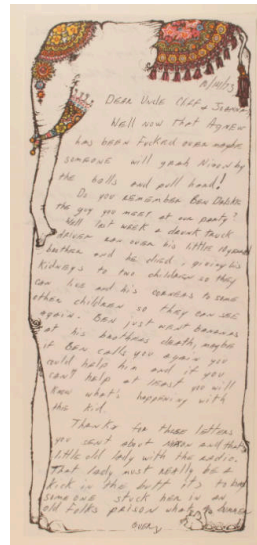 10/10/73
Dear Uncle Cliff &
Well now that Agnew
has been fucked over maybe
someone will grab Nixon by
the balls and pull hard!
Do you remember Ben
the guy you meet at our party?
Well last week a drunk truck
driver ran over his little 19 year
brother and he died, giving his
kidneys to two children so they
can live and his corneas to some
other children so they can see
again. Ben just went bananas
at his brothers death, maybe
if Ben calls you again you
could help him and if you
can't help at least you will
know what's happening with
the kid.
Thanks for those letters
you sent about Nixon and that
little old lady with the radio.
That lady must really be a
kick in the butt it's to bad
someone stuck her in an
old folks prison what a bummer
over)